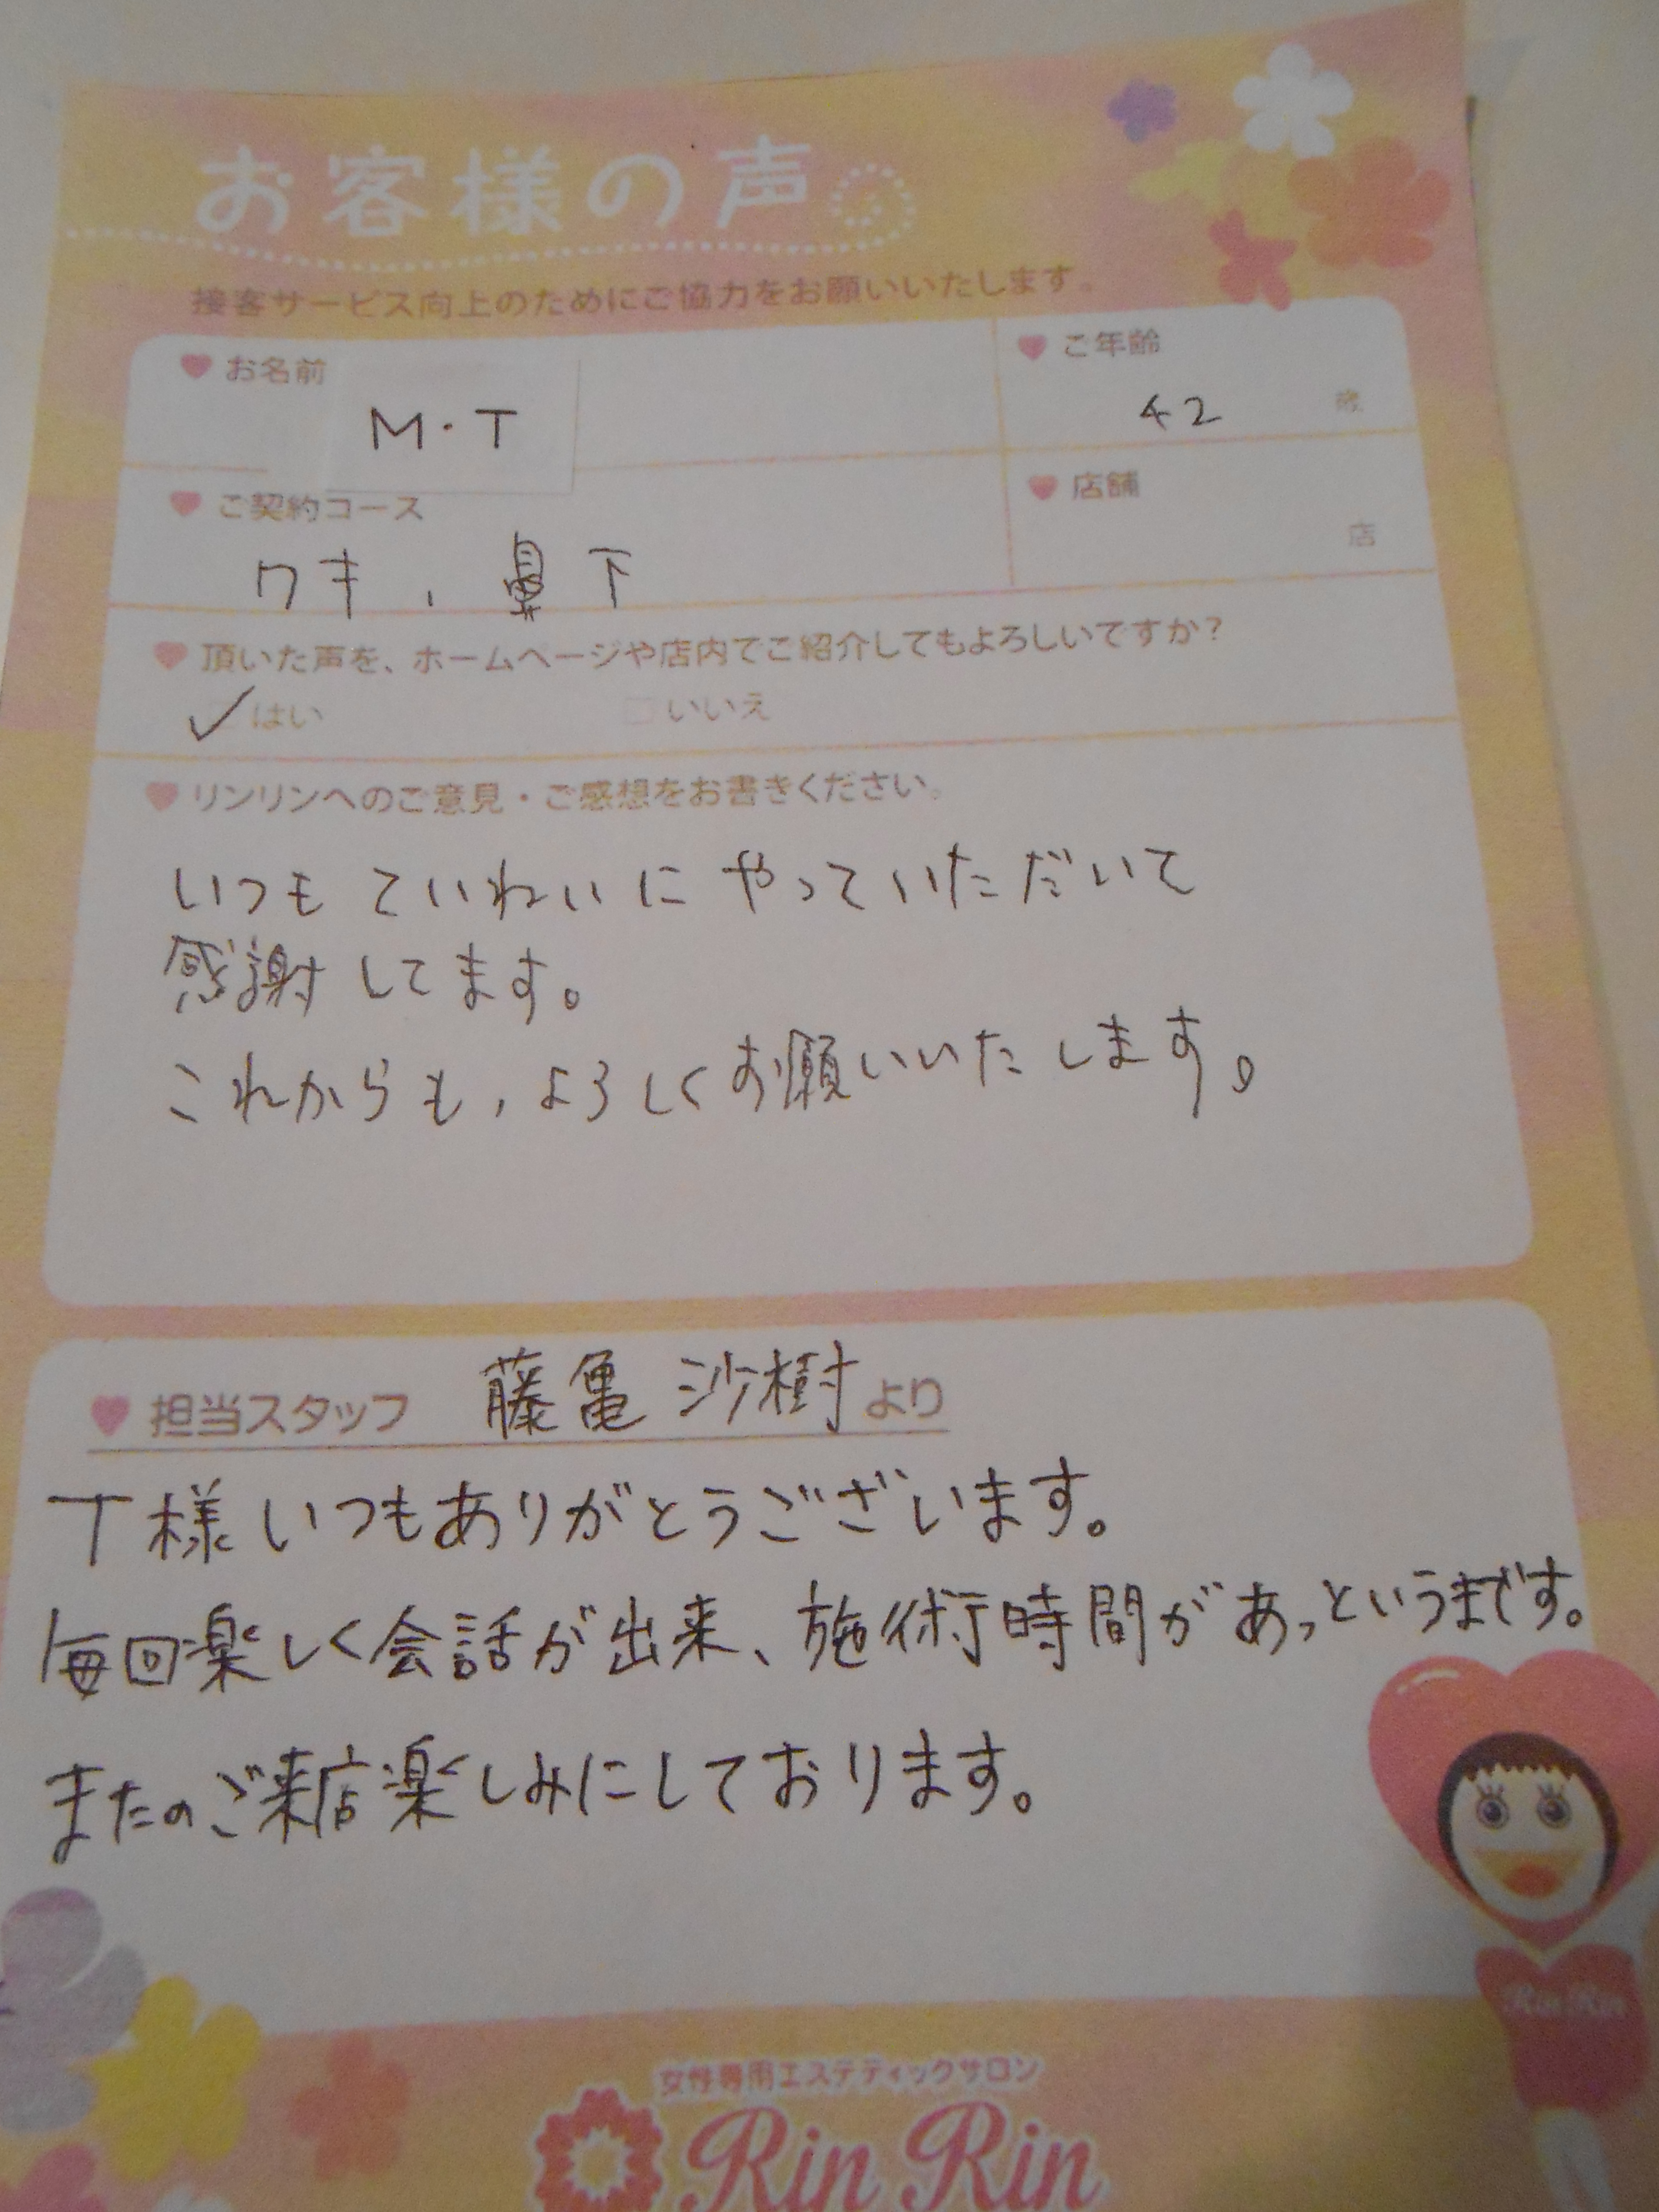 お客様の声
接客サービス向上のためにご協力をお願いいたします。
お名前
M・T
ご年齢
42 歳
ご契約コース
ワキ、鼻下
店舗
店
頂いた声を、ホームページや店内でご紹介してもよろしいですか？
✓はい □いいえ
リンリンへのご意見・ご感想をお書きください。
いつもていねいにやっていただいて
感謝してます。
これからも、よろしくお願いいたします。
担当スタッフ 藤亀 沙樹より
T様いつもありがとうございます。
毎回楽しく会話が出来、施術時間があっというまです。
またのご来店楽しみにしております。
Rin Rin
女性専用エステティックサロン
Rin Rin